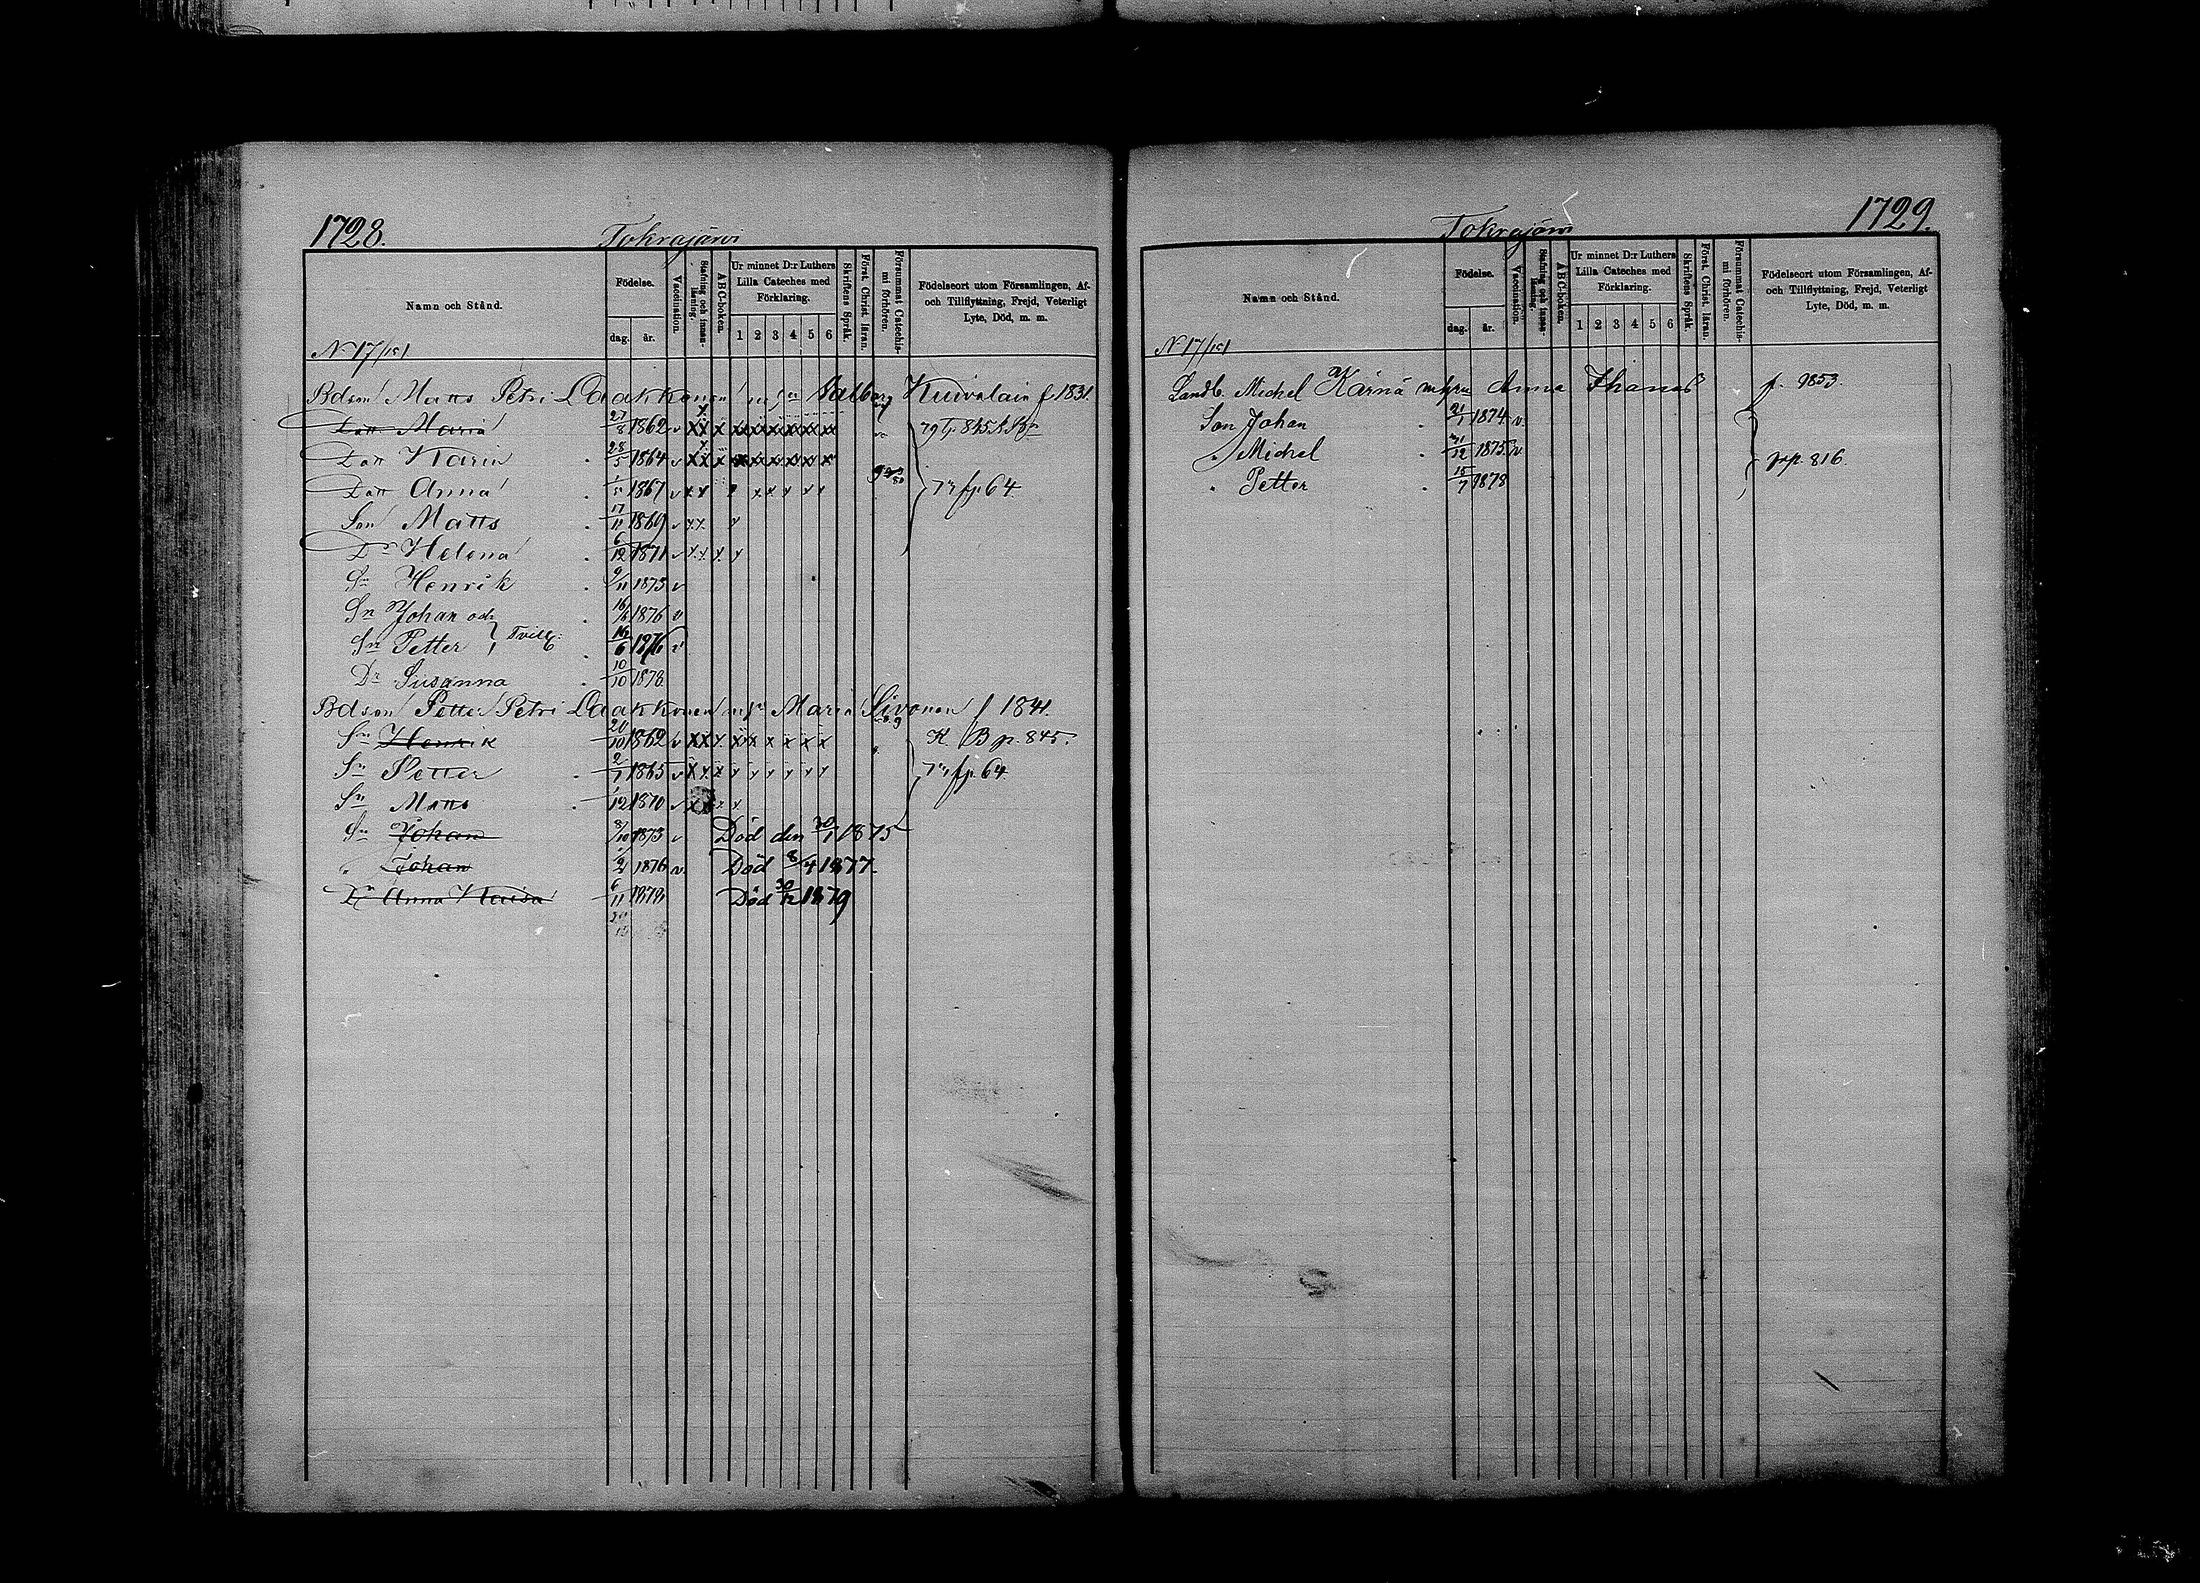 1728.
Tokrajärvi
Namn och Stånd.
Födelse.
dag. år.
Vaccination.
Stafning och innanläsning.
ABC-boken.
Ur minnet D:r Luthers Lilla Cateches med Förklaring.
1 2 3 4 5 6
Skriftens Språk.
Först. Christ. läran.
Försummat Catechismi förhören.
Födelseort utom Församlingen, Af- och Tillflyttning, Frejd, Veterligt Lyte, Död, m. m.
N 17/151
Bdson Matts Petri Laakkonen m hu Valborg Kuivalain f. 1831.
Dott Maria 27/8 1862 v x x x
Dott Karin 28/5 1864 v x x x
Dott Anna 1867 v x x x x x x x
Son Matts 17/11 1869 v x x x
Dr Helena 6/12 1871 v x x x x
Sn Henrik 9/11 1873 v
Sn Johan och 16/6 1876 v
Sn Petter } Tvill: 16/6 1876 v
Dr Susanna 10/10 1878
fp. 64
Bdson Petter Petri Laakkonen m hu Maria Sivonen f 1841.
Sn Henrik 20/10 1862 v x x x x x x x x x K. B p. 845.
Sn Petter 2/7 1865 v x x x x x x x x x fp. 64
Sn Matts 1/12 1870 v x x x x
Sn Johan 8/10 1873 v Död den 30/1 1875
" Johan 1/2 1876 v. Död 8/4 1877.
Dr Anna Kaisa 6/11 1878 Död 1879
1729.
Tokrajärvi
Namn och Stånd.
Födelse.
dag. år.
Vaccination.
Stafning och innanläsning.
ABC-boken.
Ur minnet D:r Luthers Lilla Cateches med Förklaring.
1 2 3 4 5 6
Skriftens Språk.
Först. Christ. läran.
Försummat Catechismi förhören.
Födelseort utom Församlingen, Af- och Tillflyttning, Frejd, Veterligt Lyte, Död, m. m.
N 17/151
Landb. Michel Kärnä m hu Anna Ihanus f. 1853.
Son Johan 21/1 1874 v.
" Michel 31/12 1875 v p. 816.
" Petter 15/7 1878